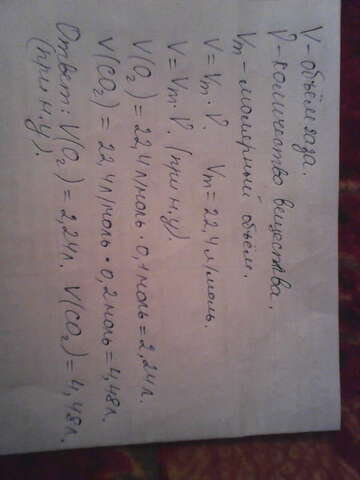 V - объём газа.
ν - количество вещества.
Vm - молярный объём.
V = Vm · ν. Vm = 22,4 л/моль.
V = Vm · ν. (при н.у).
V(O₂) = 22,4 л/моль · 0,1 моль = 2,24 л.
V(CO₂) = 22,4 л/моль · 0,2 моль = 4,48 л.
Ответ: V(O₂) = 2,24 л. V(CO₂) = 4,48 л.
(при н.у).